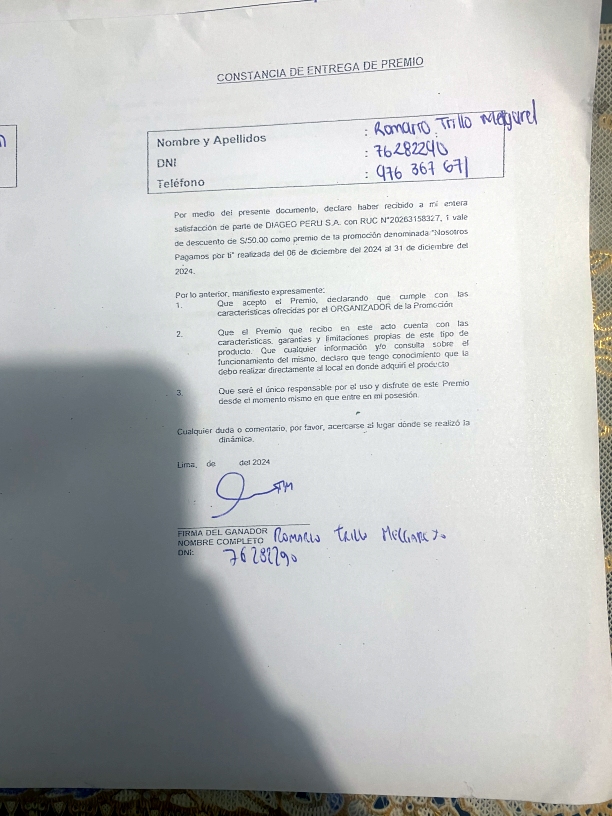 CONSTANCIA DE ENTREGA DE PREMIO
Nombre y Apellidos : Romario Trillo
DNI : 76282290
Teléfono : 976 367 671
Por medio del presente documento, declaro haber recibido a mi entera
satisfacción de parte de DIAGEO PERU S.A. con RUC N°20263158327, 1 vale
de descuento de S/50.00 como premio de la promoción denominada "Nosotros
Pagamos por ti" realizada del 06 de diciembre del 2024 al 31 de diciembre del
2024.
Por lo anterior, manifiesto expresamente:
1. Que acepto el Premio, declarando que cumple con las
características ofrecidas por el ORGANIZADOR de la Promoción
2. Que el Premio que recibo en este acto cuenta con las
características, garantías y limitaciones propias de este tipo de
producto. Que cualquier información y/o consulta sobre el
funcionamiento del mismo, declaro que tengo conocimiento que la
debo realizar directamente al local en donde adquirí el producto
3. Que seré el único responsable por el uso y disfrute de este Premio
desde el momento mismo en que entre en mi posesión.
Cualquier duda o comentario, por favor, acercarse al lugar donde se realizó la
dinámica.
Lima, de del 2024
FIRMA DEL GANADOR
NOMBRE COMPLETO Romario Trillo
DNI: 76282290